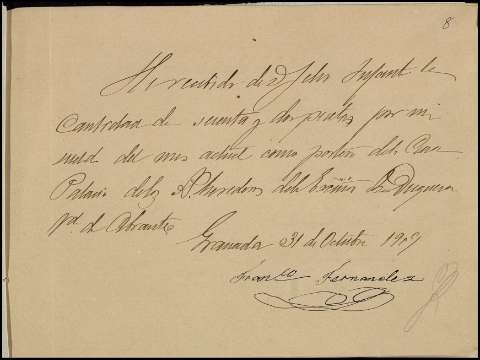 8
He recibido de D Felix Infante la
Cantidad de sesenta y dos pesetas por mi
sueld. del mes actual como portero de la Casa
Palacio de los herederos del Excmo Duque
Vd. de Abrantes
Granada 31 de Octubre 1907
Franco Fernandez